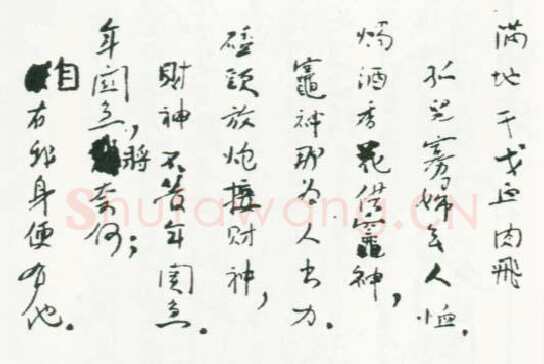 满地干戈血肉飛
孤兒寡婦无人恤.
燭酒香花供竈神,
竈神那为人出力.
磕頭放炮接財神,
財神不管年関急.
年関急,將奈何;
自有我身便有他.
Shufawang.CN